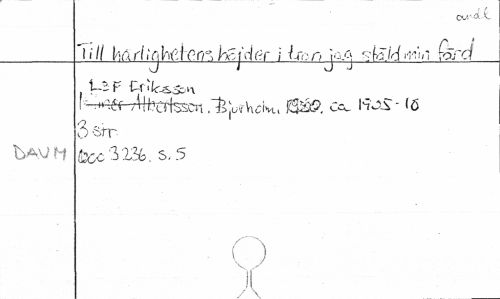 andl
Till härlighetens höjder i tron jag stäld min färd
Leif Eriksson
Albertsson, Bjurholm, ca 1905-10
3 str
DAUM acc 3236. s. 5